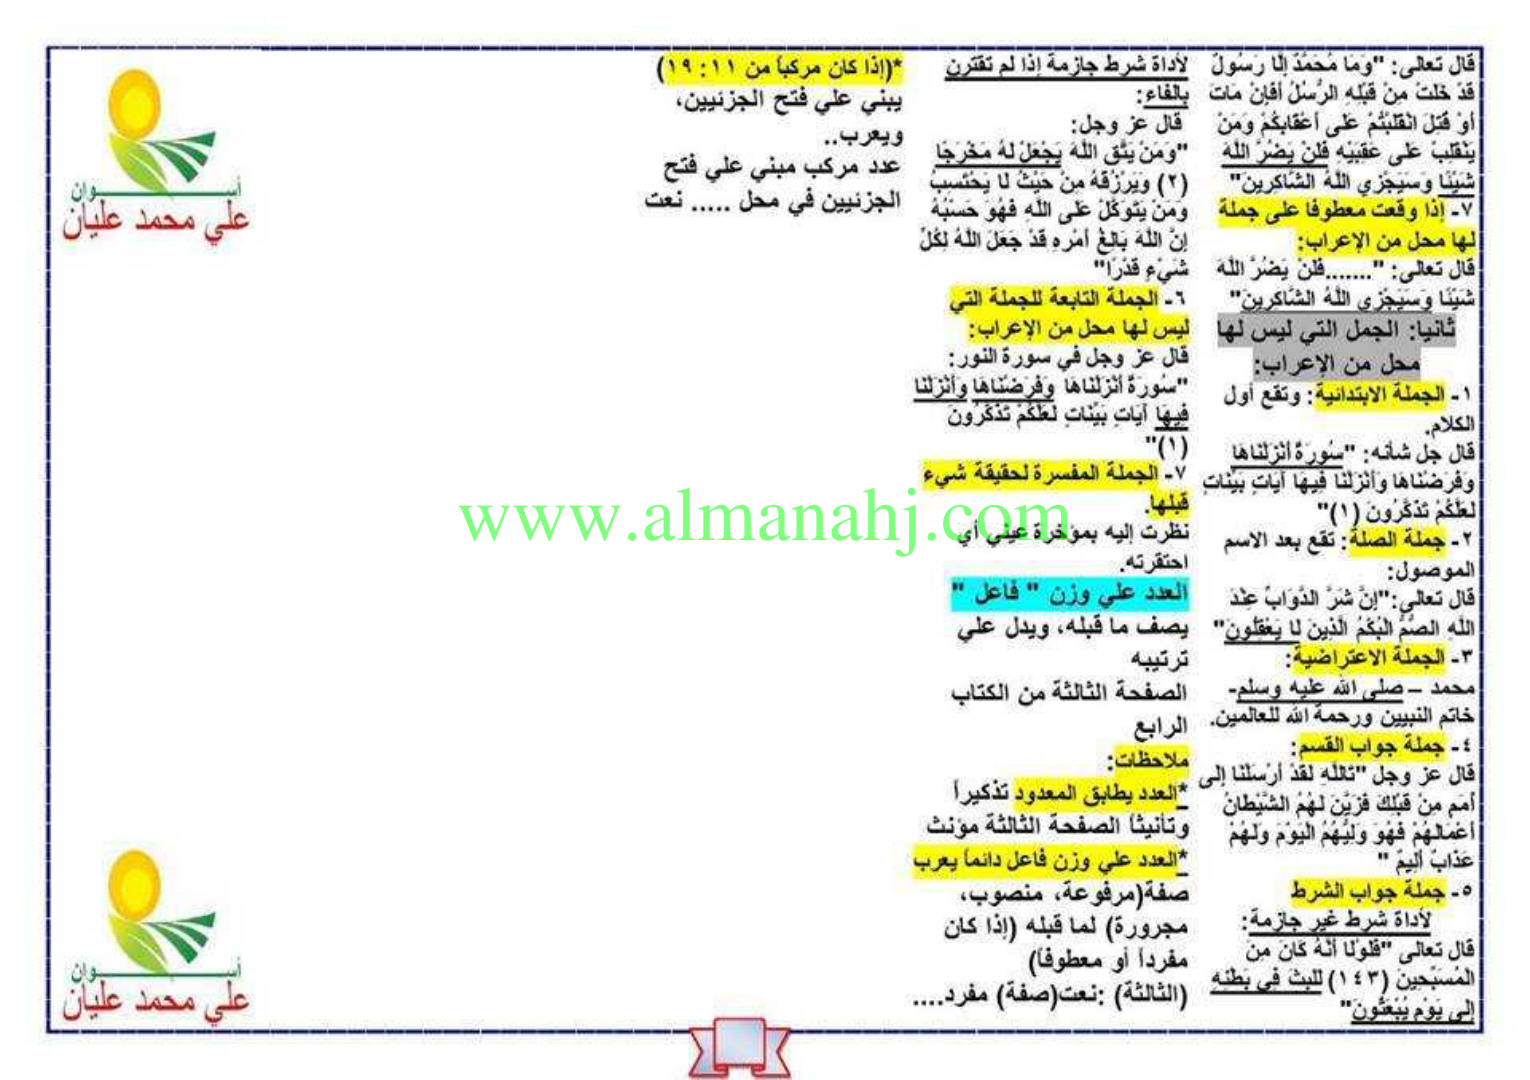 قال تعالى: "وَمَا مُحَمَّدٌ إِلَّا رَسُولٌ
قَدْ خَلَتْ مِنْ قَبْلِهِ الرُّسُلُ أَفَإِنْ مَاتَ
أَوْ قُتِلَ انْقَلَبْتُمْ عَلَى أَعْقَابِكُمْ وَمَنْ
يَنْقَلِبْ عَلَى عَقِبَيْهِ فَلَنْ يَضُرَّ اللَّهَ
شَيْئًا وَسَيَجْزِي اللَّهُ الشَّاكِرِينَ"
٧- إذا وقعت معطوفا على جملة
لها محل من الإعراب:
قال تعالى: ".......فَلَنْ يَضُرَّ اللَّهَ
شَيْئًا وَسَيَجْزِي اللَّهُ الشَّاكِرِينَ"
ثانيا: الجمل التي ليس لها
محل من الإعراب:
١- الجملة الابتدائية: وتقع أول
الكلام.
قال جل شأنه: "سُورَةٌ أَنْزَلْنَاهَا
وَفَرَضْنَاهَا وَأَنْزَلْنَا فِيهَا آيَاتٍ بَيِّنَاتٍ
لَعَلَّكُمْ تَذَكَّرُونَ (١)"
٢- جملة الصلة: تقع بعد الاسم
الموصول:
قال تعالى:"إِنَّ شَرَّ الدَّوَابِّ عِنْدَ
اللَّهِ الصُّمُّ الْبُكْمُ الَّذِينَ لَا يَعْقِلُونَ"
٣- الجملة الاعتراضية:
محمد – صلى الله عليه وسلم-
خاتم النبيين ورحمة الله للعالمين.
٤- جملة جواب القسم:
قال عز وجل "تَاللَّهِ لَقَدْ أَرْسَلْنَا إِلَى
أُمَمٍ مِنْ قَبْلِكَ فَزَيَّنَ لَهُمُ الشَّيْطَانُ
أَعْمَالَهُمْ فَهُوَ وَلِيُّهُمُ الْيَوْمَ وَلَهُمْ
عَذَابٌ أَلِيمٌ "
٥- جملة جواب الشرط
لأداة شرط غير جازمة:
قال تعالى "فَلَوْلَا أَنَّهُ كَانَ مِنَ
الْمُسَبِّحِينَ (١٤٣) لَلَبِثَ فِي بَطْنِهِ
إِلَى يَوْمِ يُبْعَثُونَ"
لأداة شرط جازمة إذا لم تقترن
بالفاء:
قال عز وجل:
"وَمَنْ يَتَّقِ اللَّهَ يَجْعَلْ لَهُ مَخْرَجًا
(٢) وَيَرْزُقْهُ مِنْ حَيْثُ لَا يَحْتَسِبُ
وَمَنْ يَتَوَكَّلْ عَلَى اللَّهِ فَهُوَ حَسْبُهُ
إِنَّ اللَّهَ بَالِغُ أَمْرِهِ قَدْ جَعَلَ اللَّهُ لِكُلِّ
شَيْءٍ قَدْرًا"
٦- الجملة التابعة للجملة التي
ليس لها محل من الإعراب:
قال عز وجل في سورة النور:
"سُورَةٌ أَنْزَلْنَاهَا وَفَرَضْنَاهَا وَأَنْزَلْنَا
فِيهَا آيَاتٍ بَيِّنَاتٍ لَعَلَّكُمْ تَذَكَّرُونَ
(١)"
٧- الجملة المفسرة لحقيقة شيء
قبلها.
نظرت إليه بمؤخرة عيني أي
احتقرته.
العدد علي وزن " فاعل "
يصف ما قبله، ويدل علي
ترتيبه
الصفحة الثالثة من الكتاب
الرابع
ملاحظات:
*العدد يطابق المعدود تذكيراً
وتأنيثاً الصفحة الثالثة مؤنث
*العدد علي وزن فاعل دائماً يعرب
صفة(مرفوعة، منصوب،
مجرورة) لما قبله (إذا كان
مفرداً أو معطوفاً)
(الثالثة) :نعت(صفة) مفرد....
*(إذا كان مركباً من ١١: ١٩)
يبني علي فتح الجزئيين،
ويعرب..
عدد مركب مبني علي فتح
الجزئيين في محل ..... نعت
أسوان
علي محمد عليان
www.almanahj.com
أسوان
علي محمد عليان